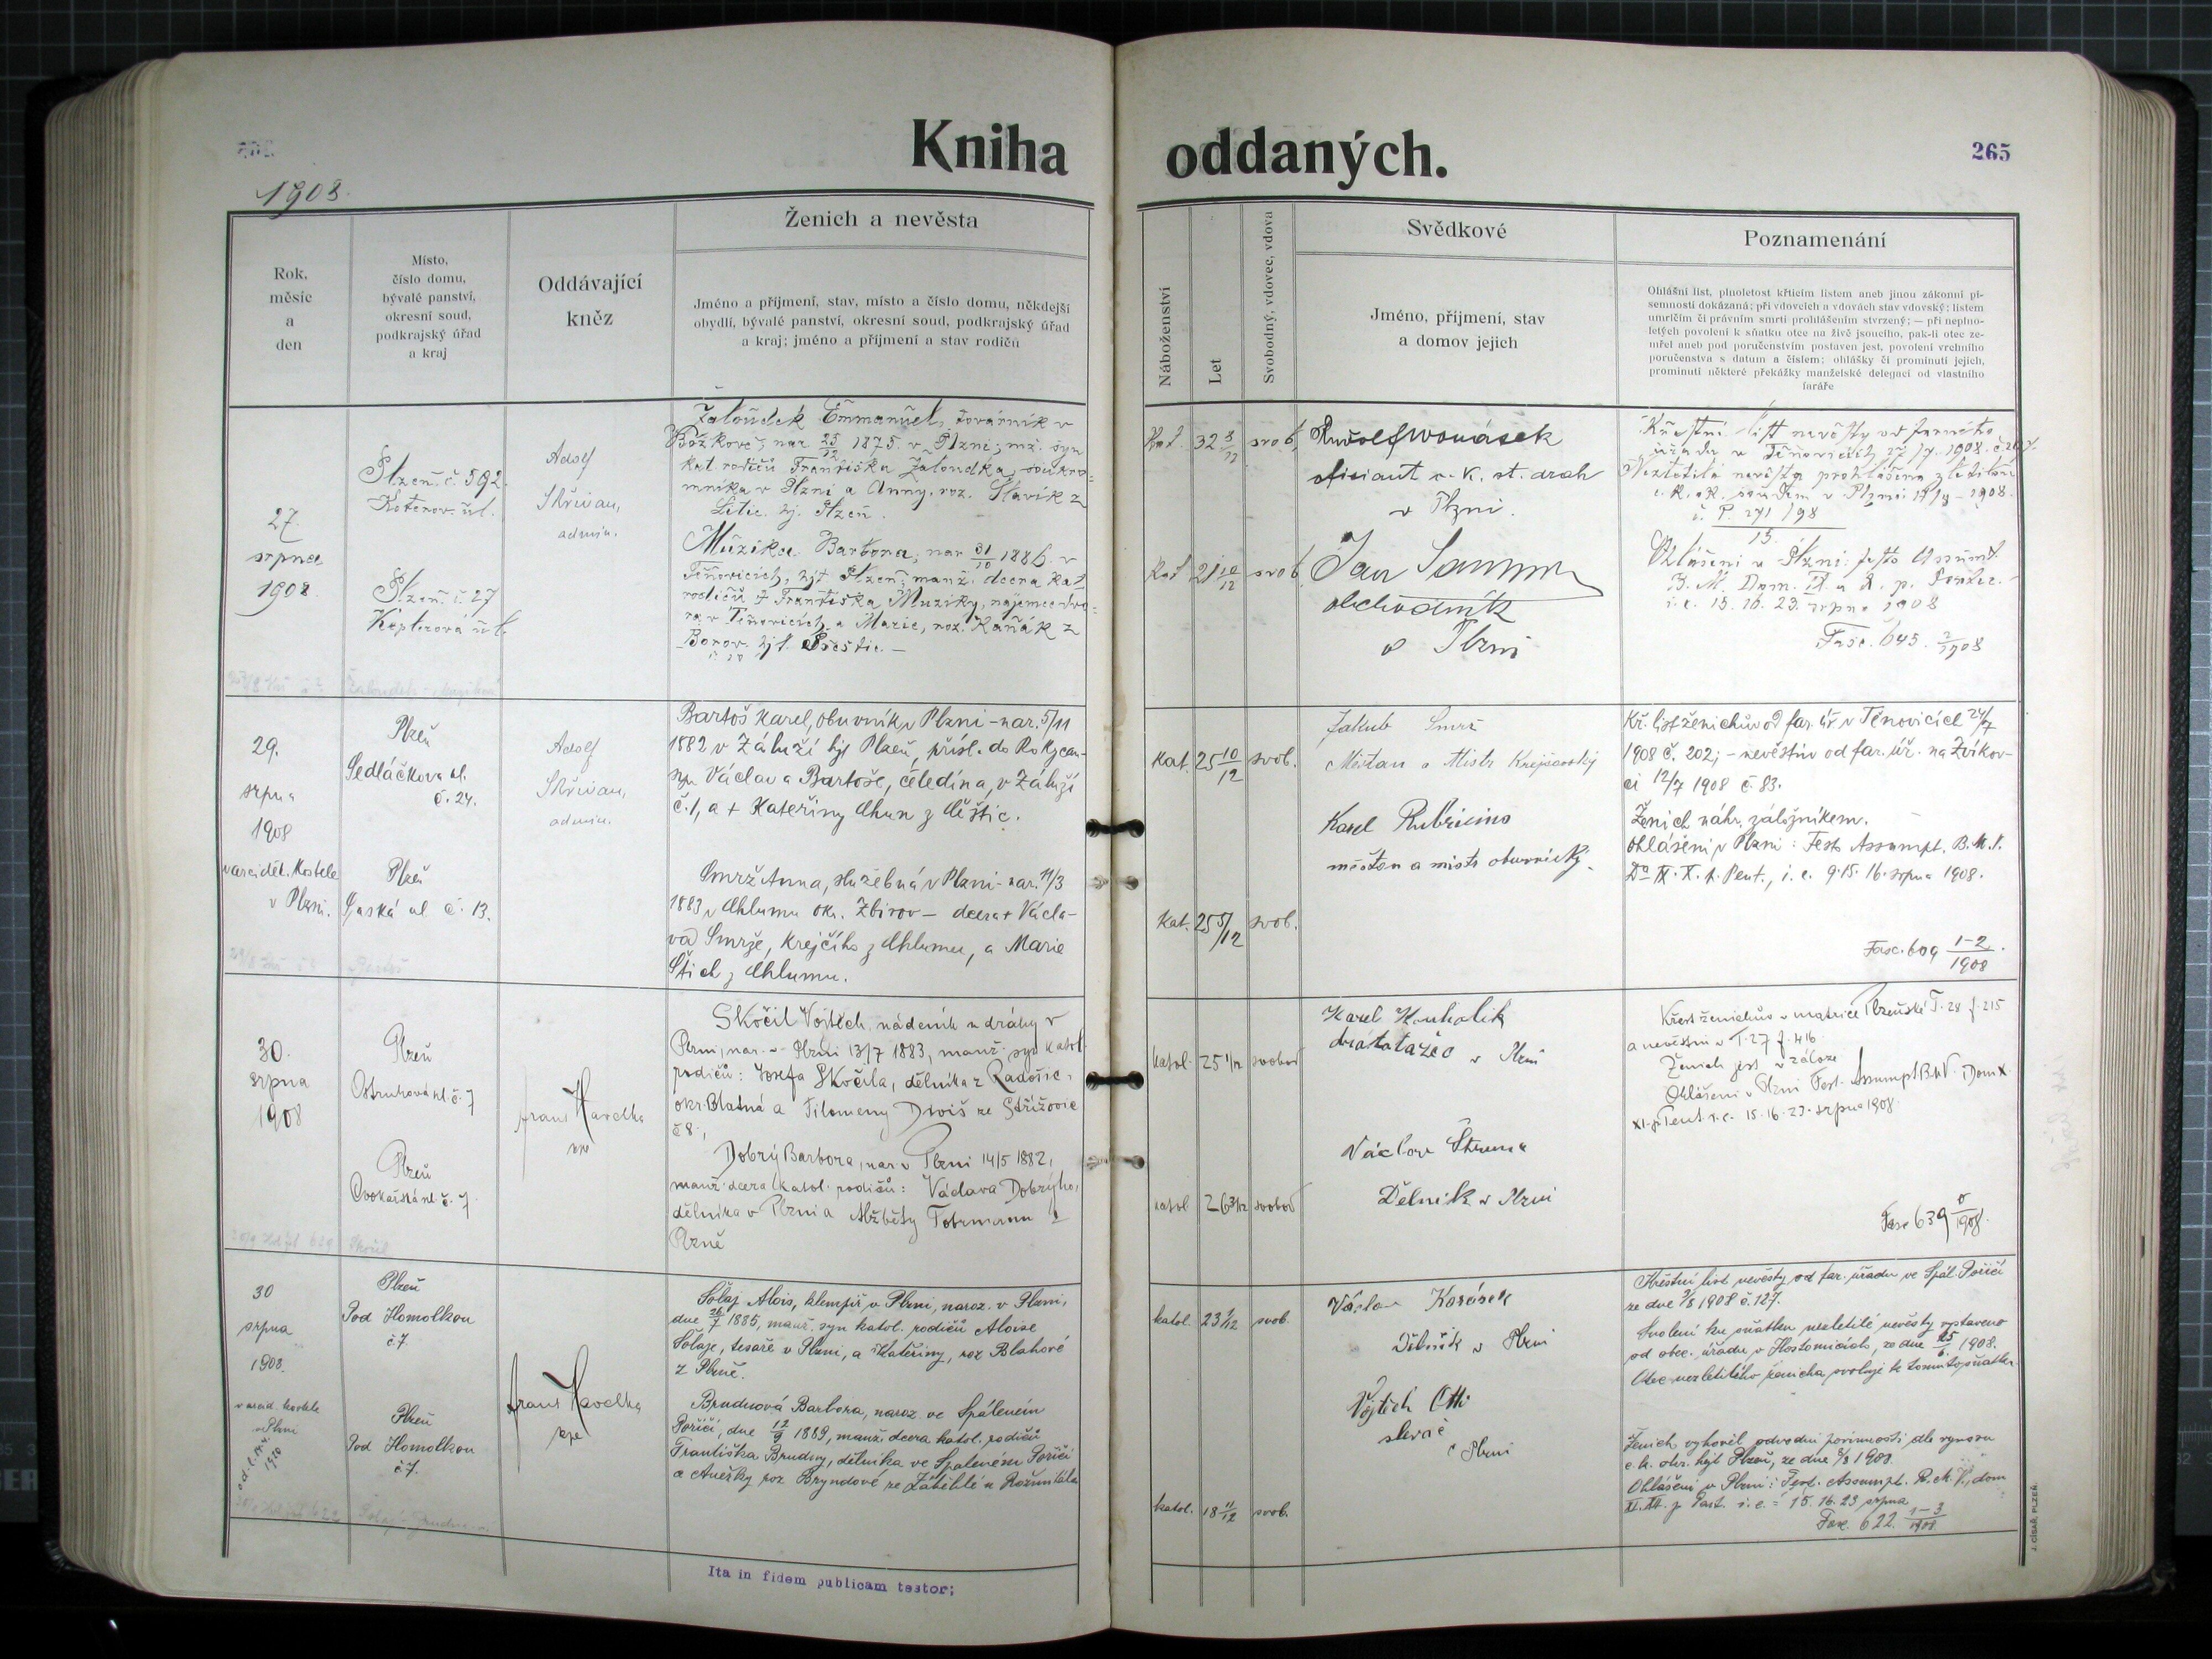 Kniha oddaných.
265
1908.
Rok,
měsíc
a
den
Místo,
číslo domu,
bývalé panství,
okresní soud,
podkrajský úřad
a kraj
Oddávající
kněz
Ženich a nevěsta
Jméno a příjmení, stav, místo a číslo domu, někdejší
obydlí, bývalé panství, okresní soud, podkrajský úřad
a kraj; jméno a příjmení a stav rodičů
Náboženství
Let
Svobodný, vdovec, vdova
Svědkové
Jméno, příjmení, stav
a domov jejich
Poznamenání
Ohlášní list, plnoletost křticím listem aneb jinou zákonní pí-
semností dokázaná; při vdovcích a vdovách stav vdovský; listem
umrlčím či právním smrti prohlášením stvrzený; — při neplno-
letých povolení k sňatku otce na živě jsoucího, pak-li otec ze-
mřel aneb pod poručenstvím postaven jest, povolení vrchního
poručenstva s datum a číslem; ohlášky či prominutí jejich,
prominutí některé překážky manželské delegací od vlastního
faráře
27.
srpna
1908.
Plzeň. č. 592.
Koterov. ul.
Plzeň. č. 27
Adolf
Skřivan,
admin.
Žaloudek Emmanuel, továrník v
Božkově, nar. 25/12 1875. v Plzni; mž. syn
kat. rodičů Františka Žaloudka, soukro-
mníka v Plzni a Anny, roz. Slavík z
Litic. hj. Plzeň.
Muzika Barbora, nar. 31/10 1886. v
Těnovicích, hjt Plzeň; manž. dcera kat.
rodičů † Františka Muziky, nájemce dvo-
ra v Těnovicích a Marie, roz. Kaňák z
Borov. hjt. Přeštic. —
Kat. 32 8/12 svob.
Kat. 21 10/12 svob.
oficiant c. k. st. drah
v Plzni.
Jan
obchodník
v Plzni
Křestní list nevěsty od farního
úřadu v Těnovicích 27/7. 1908. č.
c. k. ok. soudem v Plzni 1908.
č. P. 271/98
15.
Ohlášeni v Plzni: festo Assumt.
B. M. Dom. IX a X. p. Pentec. —
i. e. 15. 16. 23. srpna 1908
Fasc. 645. 2/1908
29.
srpna
1908
v arciděk. kostele
v Plzni.
Plzeň
Sedláčkova ul.
č. 24.
Plzeň
Saská ul č. 13.
Adolf
Skřivan,
admin.
Bartoš Karel, obuvník v Plzni - nar. 5/11
1882 v Záluží hjt Plzeň, přísl. do Rokycan-
syn Václava Bartoše, čeledína, v Záluží
č. 1, a + Kateřiny Chun z Městic.
Smrž Anna, služebná v Plzni - nar. 11/3
1883 v Chlumu okr. Zbirov — dcera + Václa-
va Smrže, krejčího z Chlumu, a Marie
Štich z Chlumu.
Kat. 25 10/12 svob.
Kat. 25 5/12 svob.
Jakub Smrž
Měšťan a Mistr Krejčovský
Karel Rubricius
měšťan a mistr obuvnický.
Kř. list ženichův od far. úř v Těnovicích 24/7
1908 č. 202; - nevěstin od far. úř. na Zvíkov-
ci 12/7 1908 č. 83.
Ženich náhr. záložníkem.
Ohlášeni v Plzni: Festo Assumpt. B.M.V.
Do IX. X. p. Pent., i. e. 9. 15. 16. srpna 1908.
Fasc. 609 1-2/1908.
30.
srpna
1908
Plzeň
Ostruhová ul. č. 7
Plzeň
Cvokařská ul. č. 7.
Franz Havelka
Skočil Vojtěch, nádeník u dráhy v
Plzni, nar. v Plzni 13/7 1883, manž. syn katol.
rodičů: Josefa Skočila, dělníka z Radošic,
okr. Blatná a Filomeny Diviš ze Střížovic
č 8.,
Dobrý Barbora, nar. v Plzni 14/5 1882,
manž. dcera katol. rodičů: Václava Dobrýho,
dělníka v Plzni a Alžběty Tobrmann z
Plzně
katol. 25 1/12 svobod
katol 26 3/12 svobod
Karel Kouhalik
v Plzni
Václav
Dělník v Plzni
Křest ženichův v matrice Plzeňské T. 28 f. 215
a nevěstin v T. 27 f. 416.
Ženich jest v záloze
Ohlášeni v Plzni Fest. Assumpt B.M.V. Dom X.
XI. p. Pent. i. e. 15. 16. 23. srpna 1908.
Fasc 639 /1908.
30
srpna
1908.
v arcid. kostele
v Plzni
Plzeň
Pod Homolkou
č. 7.
Plzeň
Pod Homolkou
č. 7.
Franz Havelka
Šolaj Alois, klempíř v Plzni, naroz. v Plzni,
dne 26/7 1885, manž. syn katol. rodičů Aloise
Šolaje, tesaře v Plzni, a Kateřiny, roz Blahové
z Plzně.
Brudnová Barbora, naroz. ve Spáleném
Poříčí, dne 12/9 1889, manž. dcera katol. rodičů
Františka Brudny, dělníka ve Spáleném Poříčí
a Anežky roz Bryndové ze Záběhlé u Rožmitála
katol. 23 1/12 svob.
katol. 18 11/12 svob.
Václav Kosásek
Dělník v Plzni
Vojtěch Otti
slevač
v Plzni
Křestní list nevěsty od far. úřadu ve Spál. Poříčí
ze dne 3/8 1908 č. 127.
Svolení ku sňatku nezletilé nevěsty vystaveno
od obec. úřadu v Hostomicích, ze dne 25/6. 1908.
Otec nezletilého ženicha svoluje k tomuto sňatku.
Ženich vyhověl odvodní povinnosti dle výnosu
c. k. okr. hejt Plzeň, ze dne 8/8 1908.
Ohlášeni v Plzni: Fest. Assumpt. B. M. V., dom
XI. p Pent. i. e. = 15. 16. 23 srpna
Fasc. 622. 1-3/1908
Ita in fidem publicam testor;
J. CÍSAŘ, PLZEŇ.